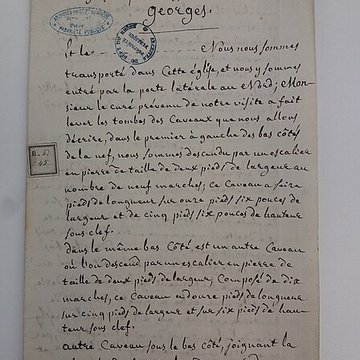 Georges.
Et le
Nous nous sommes
transporté dans Cette église, et nous y sommes
entré par la porte latérale au Nord; Mon-
sieur le curé prévenu de notre visite a fait
lever les tombes des Caveaux que nous allons
décrire, dans le premier à gauche des bas côtés
de la nef, nous sommes descendu par un escalier
en pierre de taille de deux pieds de largeur au
nombre de neuf marches; ce Caveau a seize
pieds de longueur sur onze pieds six pouces de
largeur et de cinq pieds six pouces de hauteur
sous clef.
dans le même bas Côté est un autre Caveau
où l'on descend par un escalier en pierre de
taille de deux pieds de largeur, Composé de dix
marches, ce Caveau a douze pieds de longueur
sur cinq pieds de largeur et sur six pieds de hau-
teur sous clef.
autre Caveau sous le bas côté, joignant la